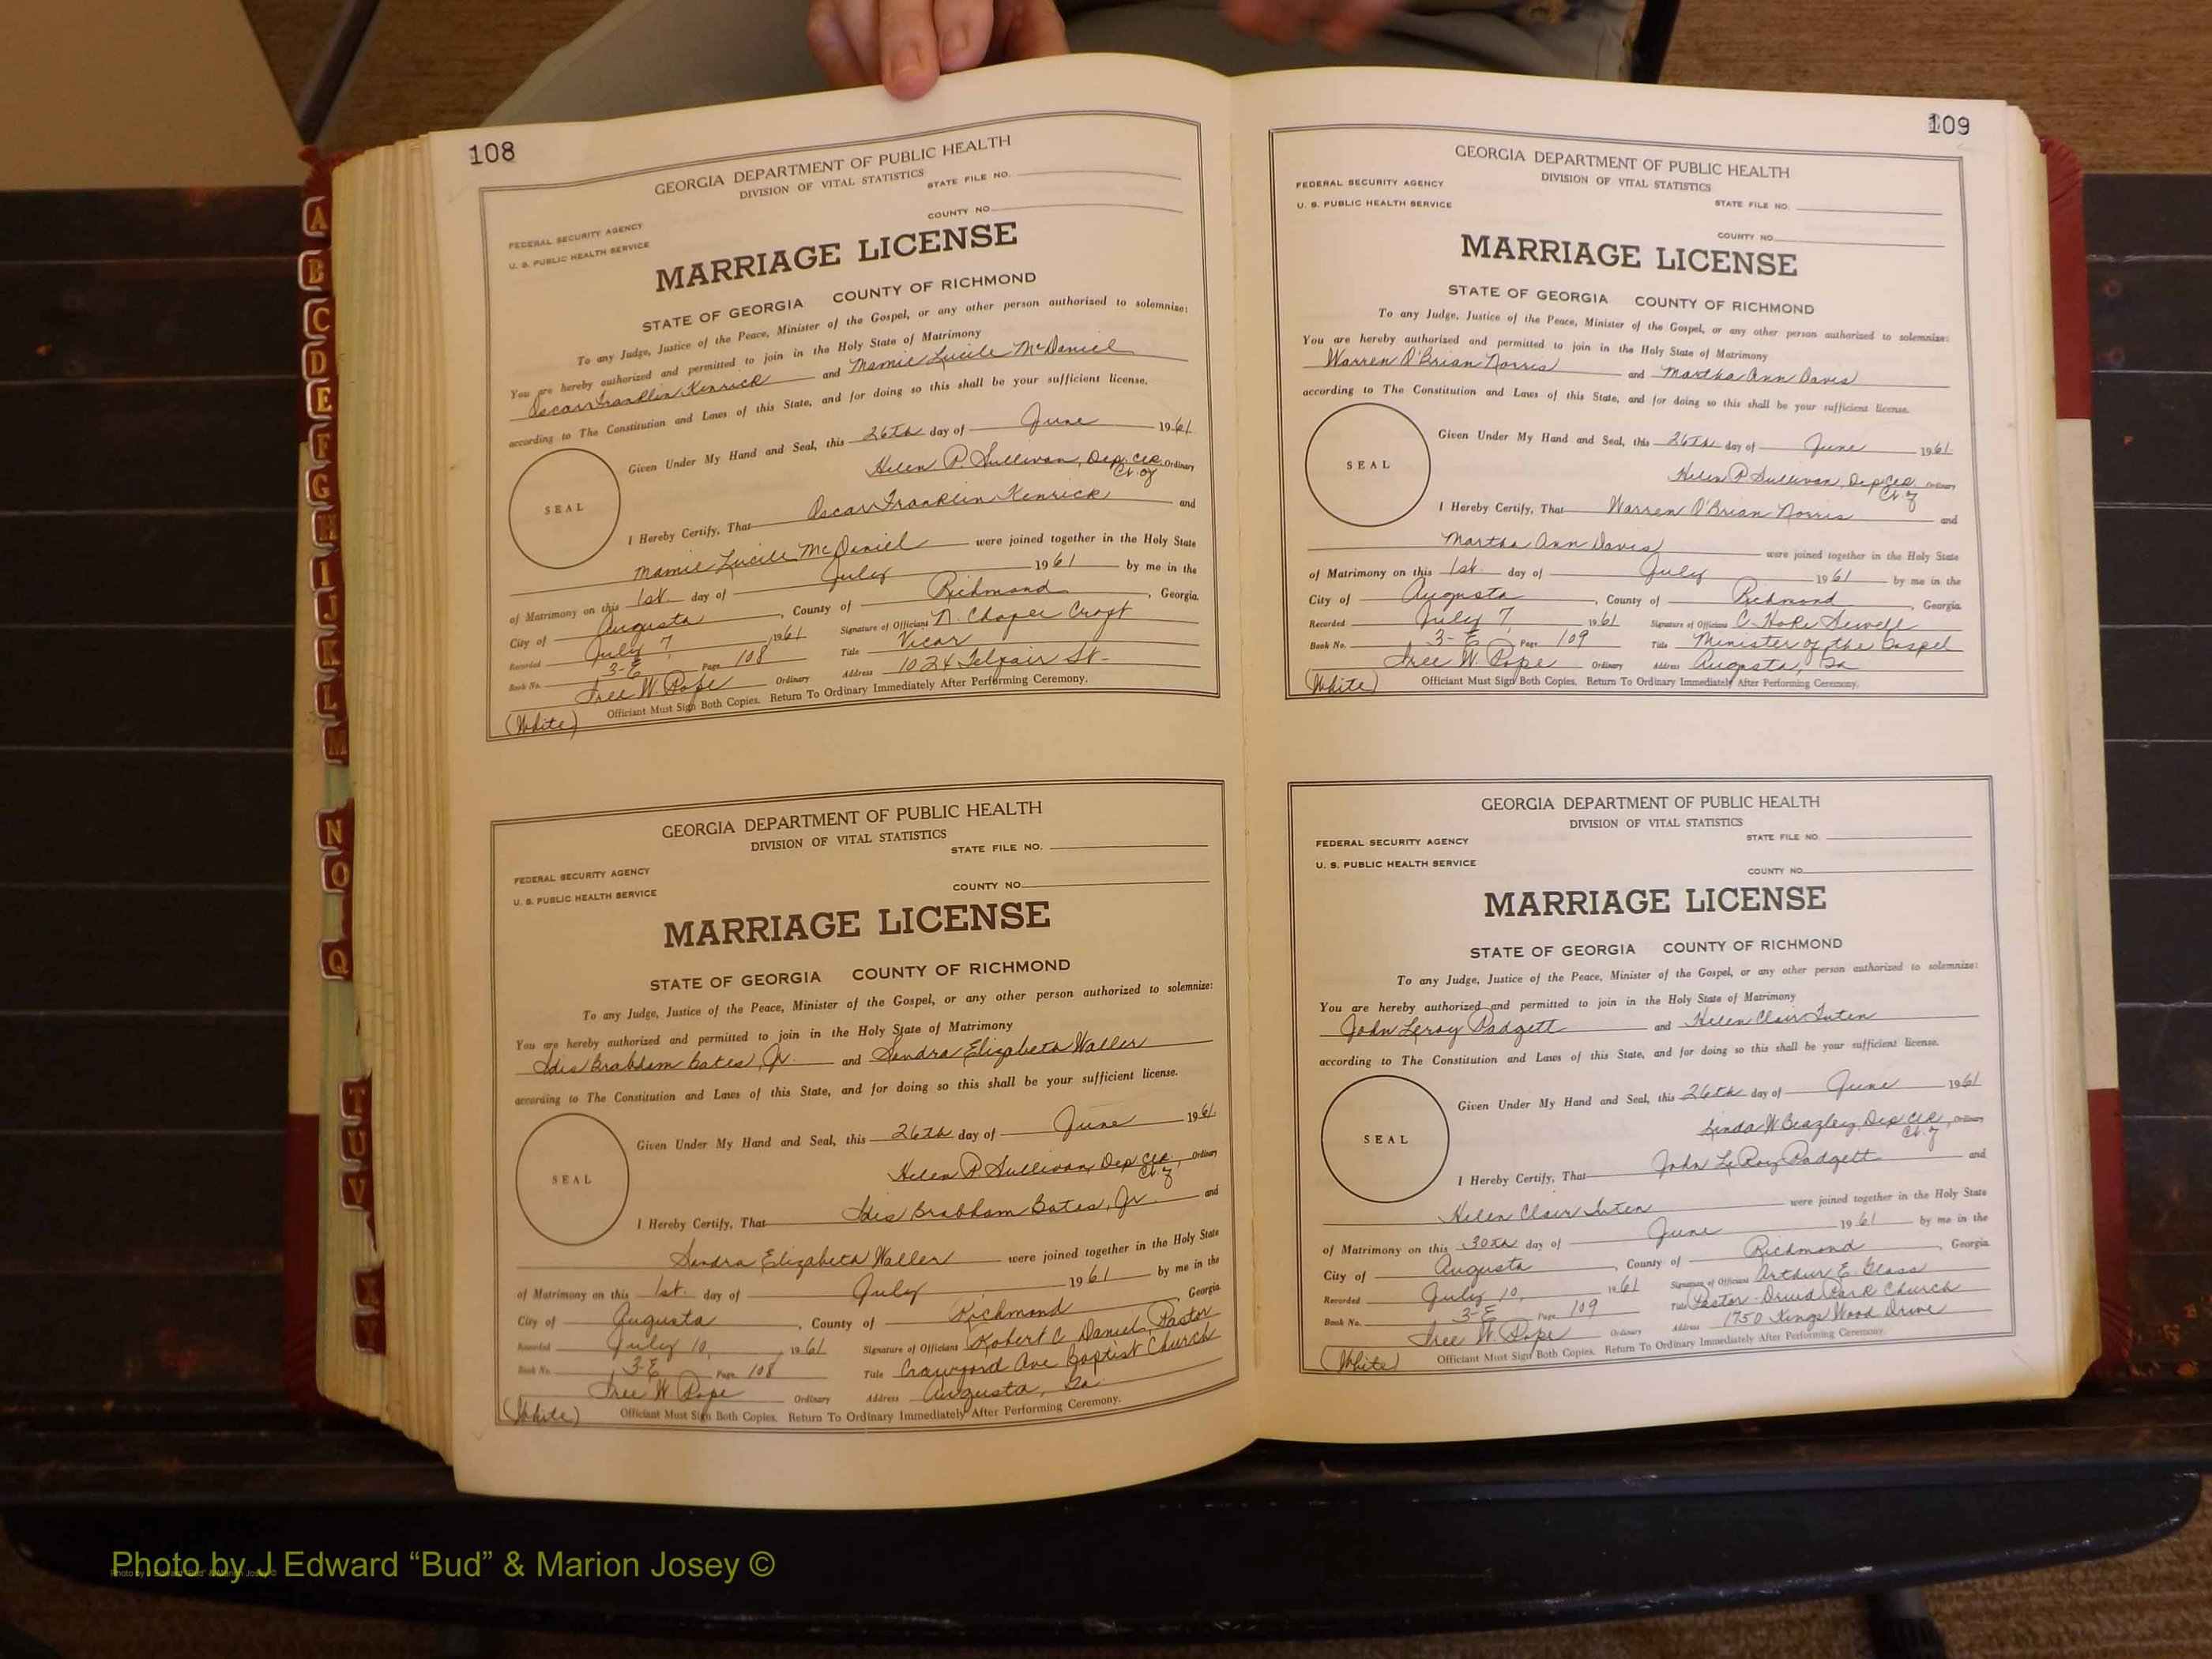 108
GEORGIA DEPARTMENT OF PUBLIC HEALTH
DIVISION OF VITAL STATISTICS
STATE FILE NO.
FEDERAL SECURITY AGENCY
U. S. PUBLIC HEALTH SERVICE
COUNTY NO.
MARRIAGE LICENSE
STATE OF GEORGIA COUNTY OF RICHMOND
To any Judge, Justice of the Peace, Minister of the Gospel, or any other person authorized to solemnize:
You are hereby authorized and permitted to join in the Holy State of Matrimony
Oscar Franklin Kenrick and Mamie Lucile McDaniel
according to The Constitution and Laws of this State, and for doing so this shall be your sufficient license.
Given Under My Hand and Seal, this 26th day of June 1961
Helen P. Sullivan, Dep. Clk. Ordinary
Ct. of
SEAL
I Hereby Certify, That Oscar Franklin Kenrick and
Mamie Lucile McDaniel were joined together in the Holy State
of Matrimony on this 1st. day of July 1961 by me in the
City of Augusta, County of Richmond, Georgia.
Recorded July 7, 1961 Signature of Officiant N. Croft
Book No. 3-E Page 108 Title Vicar
Tree W. Pope Ordinary Address 1024 Telfair St.
(White) Officiant Must Sign Both Copies. Return To Ordinary Immediately After Performing Ceremony.
GEORGIA DEPARTMENT OF PUBLIC HEALTH
DIVISION OF VITAL STATISTICS
STATE FILE NO.
FEDERAL SECURITY AGENCY
U. S. PUBLIC HEALTH SERVICE
COUNTY NO.
MARRIAGE LICENSE
STATE OF GEORGIA COUNTY OF RICHMOND
To any Judge, Justice of the Peace, Minister of the Gospel, or any other person authorized to solemnize:
You are hereby authorized and permitted to join in the Holy State of Matrimony
Idis Brabham Bates, Jr. and Sandra Elizabeth Waller
according to The Constitution and Laws of this State, and for doing so this shall be your sufficient license.
Given Under My Hand and Seal, this 26th day of June 1961
Helen P. Sullivan, Dep Clk, Ordinary
Ct. of
SEAL
I Hereby Certify, That Idis Brabham Bates, Jr. and
Sandra Elizabeth Waller were joined together in the Holy State
of Matrimony on this 1st. day of July 1961 by me in the
City of Augusta, County of Richmond Georgia
Recorded July 10, 1961 Signature of Officiant Robert C Daniel, Pastor
Book No. 3-E Page 108 Title Crawford Ave Baptist Church
Tree W Pope Ordinary Address Augusta, Ga.
(White) Officiant Must Sign Both Copies. Return To Ordinary Immediately After Performing Ceremony.
109
GEORGIA DEPARTMENT OF PUBLIC HEALTH
DIVISION OF VITAL STATISTICS
FEDERAL SECURITY AGENCY
U. S. PUBLIC HEALTH SERVICE
STATE FILE NO.
COUNTY NO.
MARRIAGE LICENSE
STATE OF GEORGIA COUNTY OF RICHMOND
To any Judge, Justice of the Peace, Minister of the Gospel, or any other person authorized to solemnize:
You are hereby authorized and permitted to join in the Holy State of Matrimony
Warren O'Brian Norris and Martha Ann Davis
according to The Constitution and Laws of this State, and for doing so this shall be your sufficient license.
Given Under My Hand and Seal, this 26th day of June 1961
Helen P Sullivan, Dep Clk Ordinary
Ct. of
SEAL
I Hereby Certify, That Warren O'Brian Norris and
Martha Ann Davis were joined together in the Holy State
of Matrimony on this 1st. day of July 1961 by me in the
City of Augusta, County of Richmond, Georgia.
Recorded July 7, 1961 Signature of Officiant C. Hoke Sewell
Book No. 3-E Page 109 Title Minister of the Gospel
Tree W. Pope Ordinary Address Augusta, Ga
(White) Officiant Must Sign Both Copies. Return To Ordinary Immediately After Performing Ceremony.
GEORGIA DEPARTMENT OF PUBLIC HEALTH
DIVISION OF VITAL STATISTICS
STATE FILE NO.
FEDERAL SECURITY AGENCY
U. S. PUBLIC HEALTH SERVICE
COUNTY NO.
MARRIAGE LICENSE
STATE OF GEORGIA COUNTY OF RICHMOND
To any Judge, Justice of the Peace, Minister of the Gospel, or any other person authorized to solemnize:
You are hereby authorized and permitted to join in the Holy State of Matrimony
John Leroy Padgett and Helen Clair Inten
according to The Constitution and Laws of this State, and for doing so this shall be your sufficient license.
Given Under My Hand and Seal, this 26th day of June 1961
Linda W Beazley, Dep Clk, Ordinary
Ct. of
SEAL
I Hereby Certify, That John LeRoy Padgett and
Helen Clair Inten were joined together in the Holy State
of Matrimony on this 30th day of June 1961 by me in the
City of Augusta, County of Richmond, Georgia
Recorded July 10, 1961 Signature of Officiant Arthur E. Glass
Book No. 3-E Page 109 Title Pastor - Druid Park Church
Tree W. Pope Ordinary Address 1750 Kings Wood Drive
(White) Officiant Must Sign Both Copies. Return To Ordinary Immediately After Performing Ceremony.
A
B
C
D
E
F
G
H
I
J
K
L
M
N
O
Q
T
U
V
X
Y
Photo by J Edward “Bud” & Marion Josey ©
Photo by J Edward "Bud" & Marion Josey ©